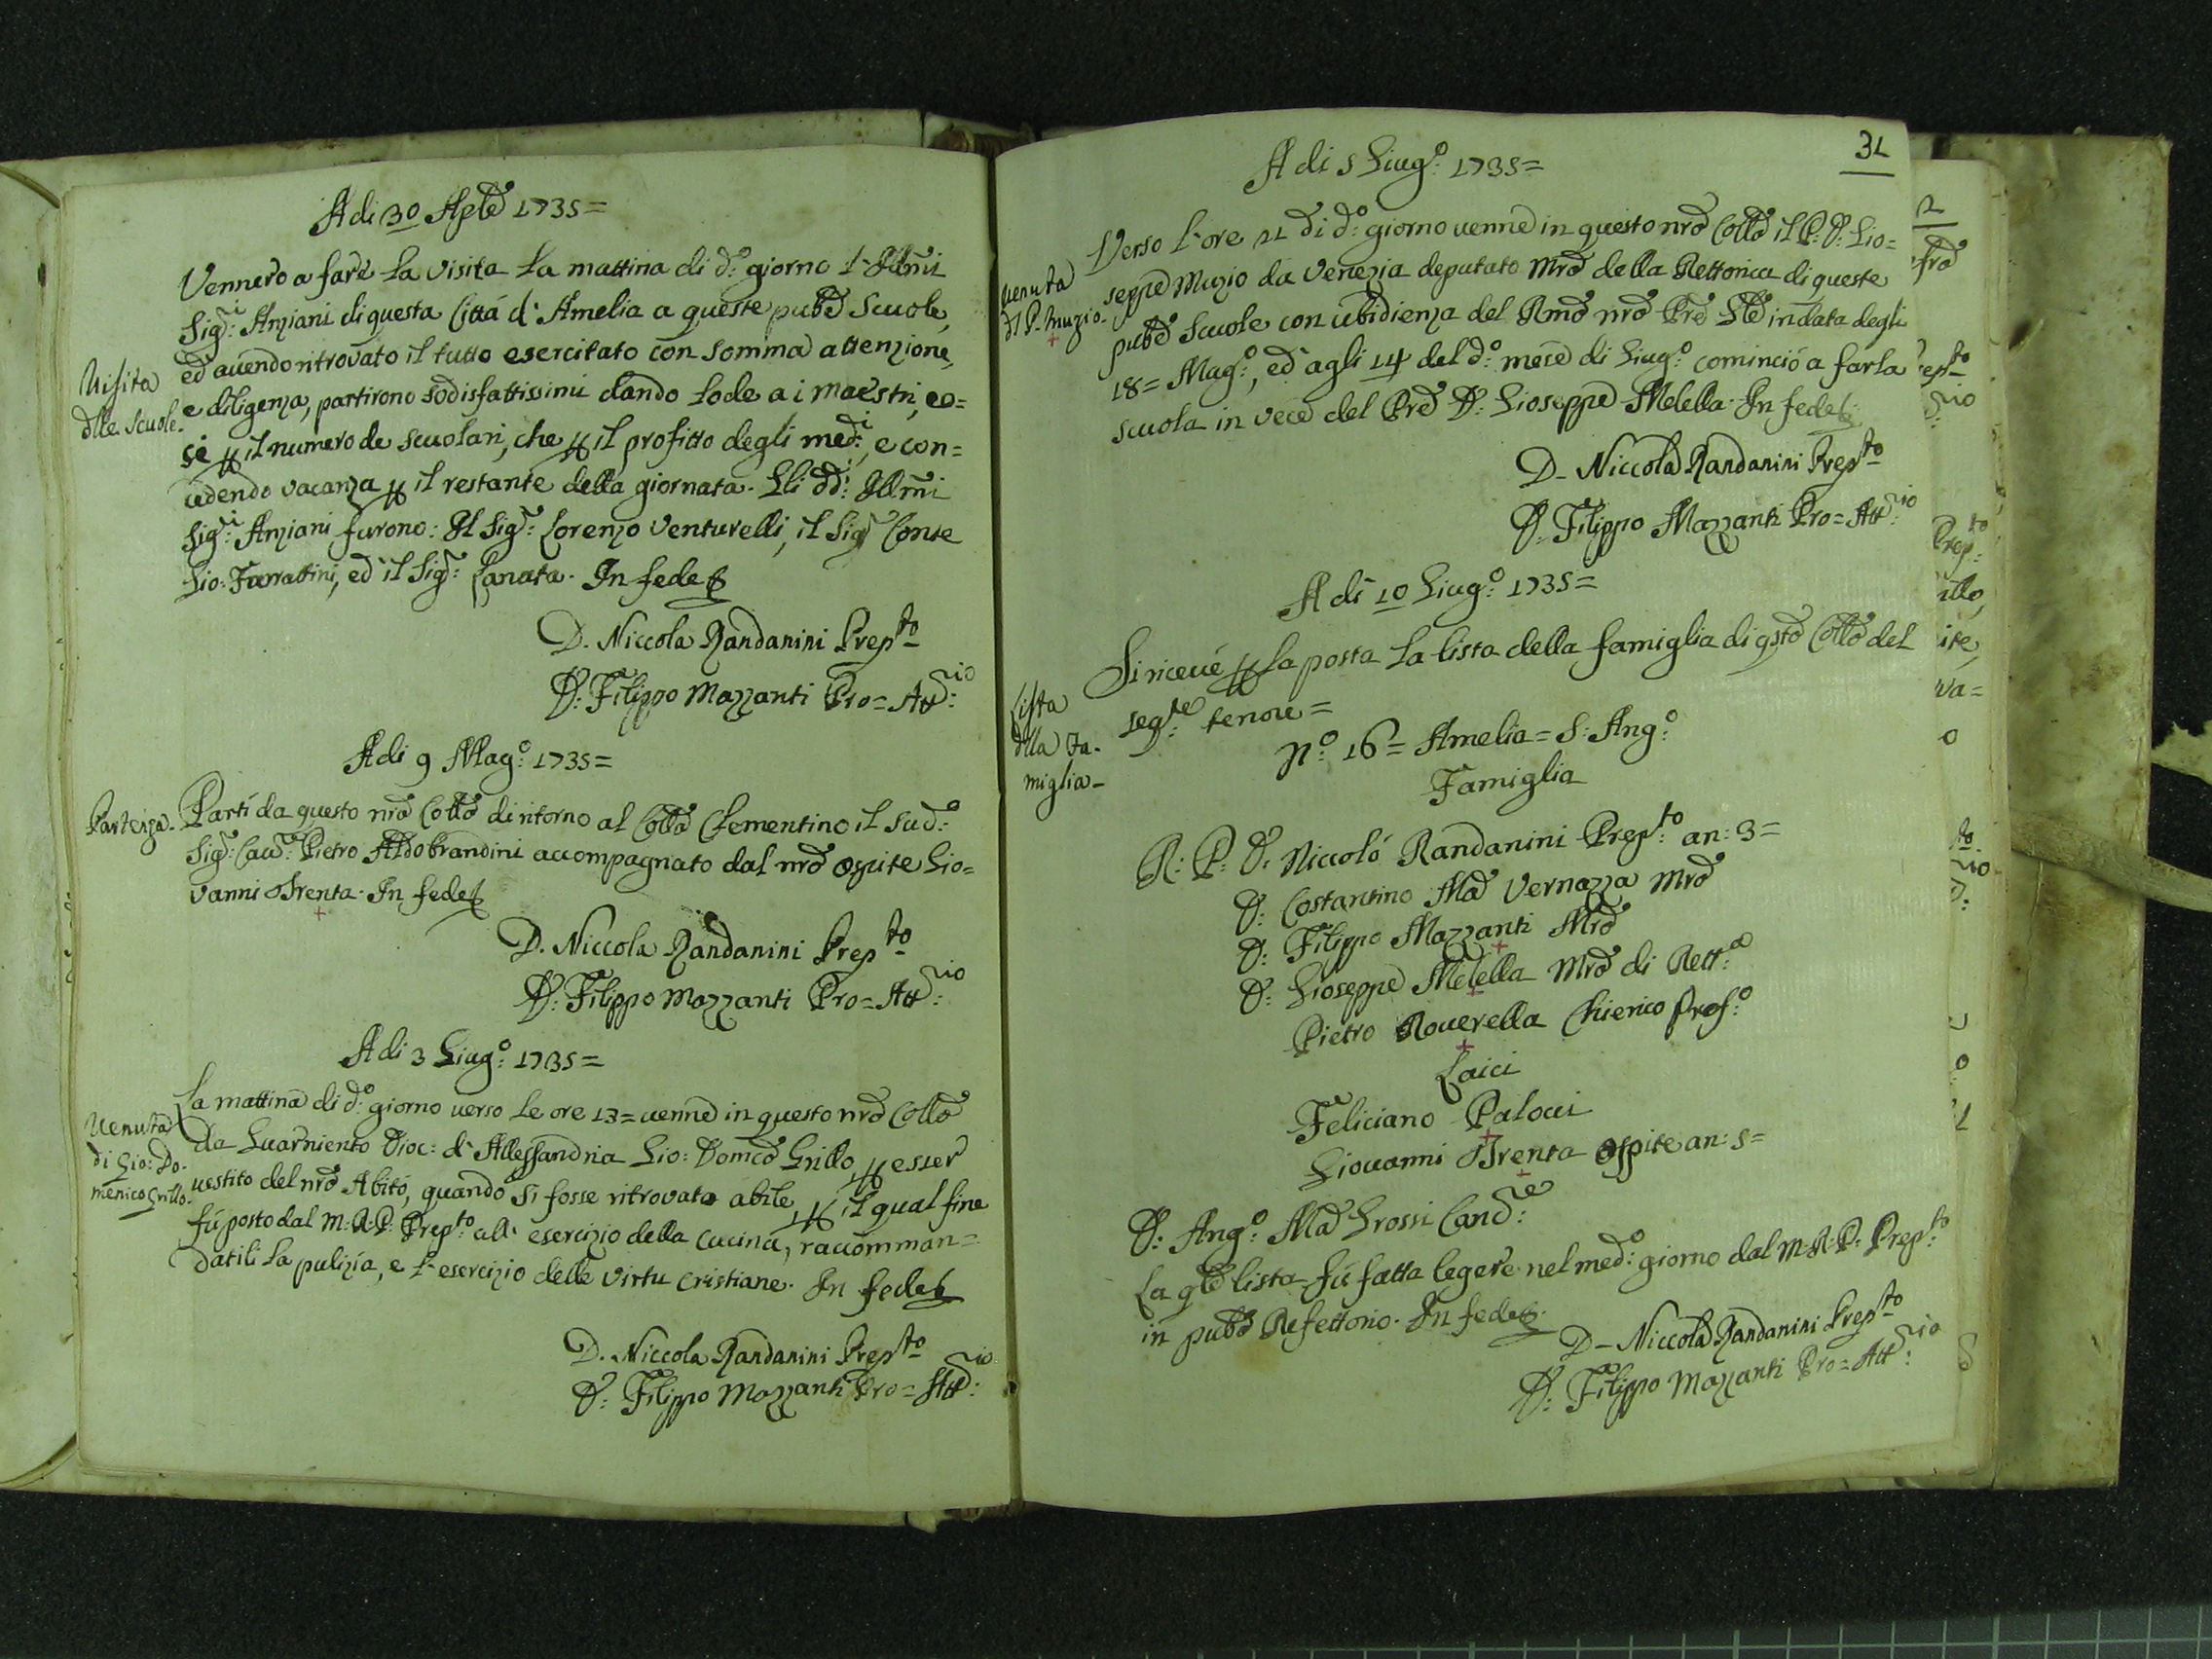 A di 30 Aple 1735=
Vennero a fare la visita la mattina di d.o giorno l'Illmi
Sig.i Anziani di questa Città d'Amelia a queste pubе Scuole,
Visita
dlle Scuole.
ed avendo ritrovato il tutto esercitato con somma attenzione,
e diligenza, partirono sodisfattissimi dando lode a i maestri, co=
sì ꝑ il numero de scuolari, che ꝑ il profitto degli med.i, e con=
cedendo vacanza ꝑ il restante della giornata. Gli dd.i Illmi
Sig.i Anziani furono: Il Sig.r Lorenzo Venturelli, il Sig.r Conte
Gio: Farrattini, ed il Sig.r Canata. In fede
D. Niccola Randanini Prep.to
D: Filippo Mazzanti Pro=Att:rio
A di 9 Mag.o 1735=
Partenza.
Partì da questo nro Collo di ritorno al Collo Clementino il sud.o
Sig.r Cav.r Pietro Aldobrandini accompagnato dal nro ospite Gio=
vanni Trenta. In fede
D. Niccola Randanini Prep.to
D: Filippo Mazzanti Pro=Att:rio
A di 3 Giug.o 1735=
Venuta
di Gio: Do.
menico Grillo.
La mattina di d.o giorno verso le ore 13= venne in questo nro Collo
da Quarniento Dioc: d'Allessandria Gio: Domco Grillo ꝑ esser
vestito del nro Abito, quando si fosse ritrovato abile, ꝑ il qual fine
fù posto dal M: R: P: Prep.to all'esercizio della cucina, raccomman=
datili la pulizia, e l'esercizio delle virtu cristiane. In fede
D. Niccola Randanini Prep.to
D: Filippo Mazzanti Pro=Att:rio
31
A di 5 Giug.o 1735=
Venuta
dl P. Muzio.
Verso l'ore 21 di d.o giorno venne in questo nro Collo il P: D: Gio=
seppe Muzio da Venezia deputato Mro della Rettorica di queste
pube Scuole con ubidienza del Rmo nro Pre Gle in data degli
18= Mag.o, ed agli 14 del d.o mese di Giug.o cominciò a far la
scuola in vece del Pre D: Gioseppe Melella. In fede
D- Niccola Randanini Prep.to
D: Filippo Mazzanti Pro=Att:rio
A di 10 Giug.o 1735=
Lista
dlla Fa-
miglia-
Si ricevé ꝑ la posta la lista della famiglia di qsto Collo del
seg.te tenore=
N.o 16= Amelia= S: Ang.o
Famiglia
R: P: D: Niccoló Randanini Prep.to an: 3=
D: Costantino Ma Vernazza Mro
D: Filippo Mazzanti Mro
D: Gioseppe Melella Mro di Rett.a
Pietro Roverella Chierico Prof.o
Laici
Feliciano Palocci
Giovanni Trenta Ospite an: 5=
D: Ang.o Ma Grossi Cand.e
La qle lista fù fatta legere nel med.o giorno dal M: R: P: Prep.to
in pubo Refettorio. In fede
D- Niccola Randanini Prep.to
D: Filippo Mazzanti Pro=Att:rio